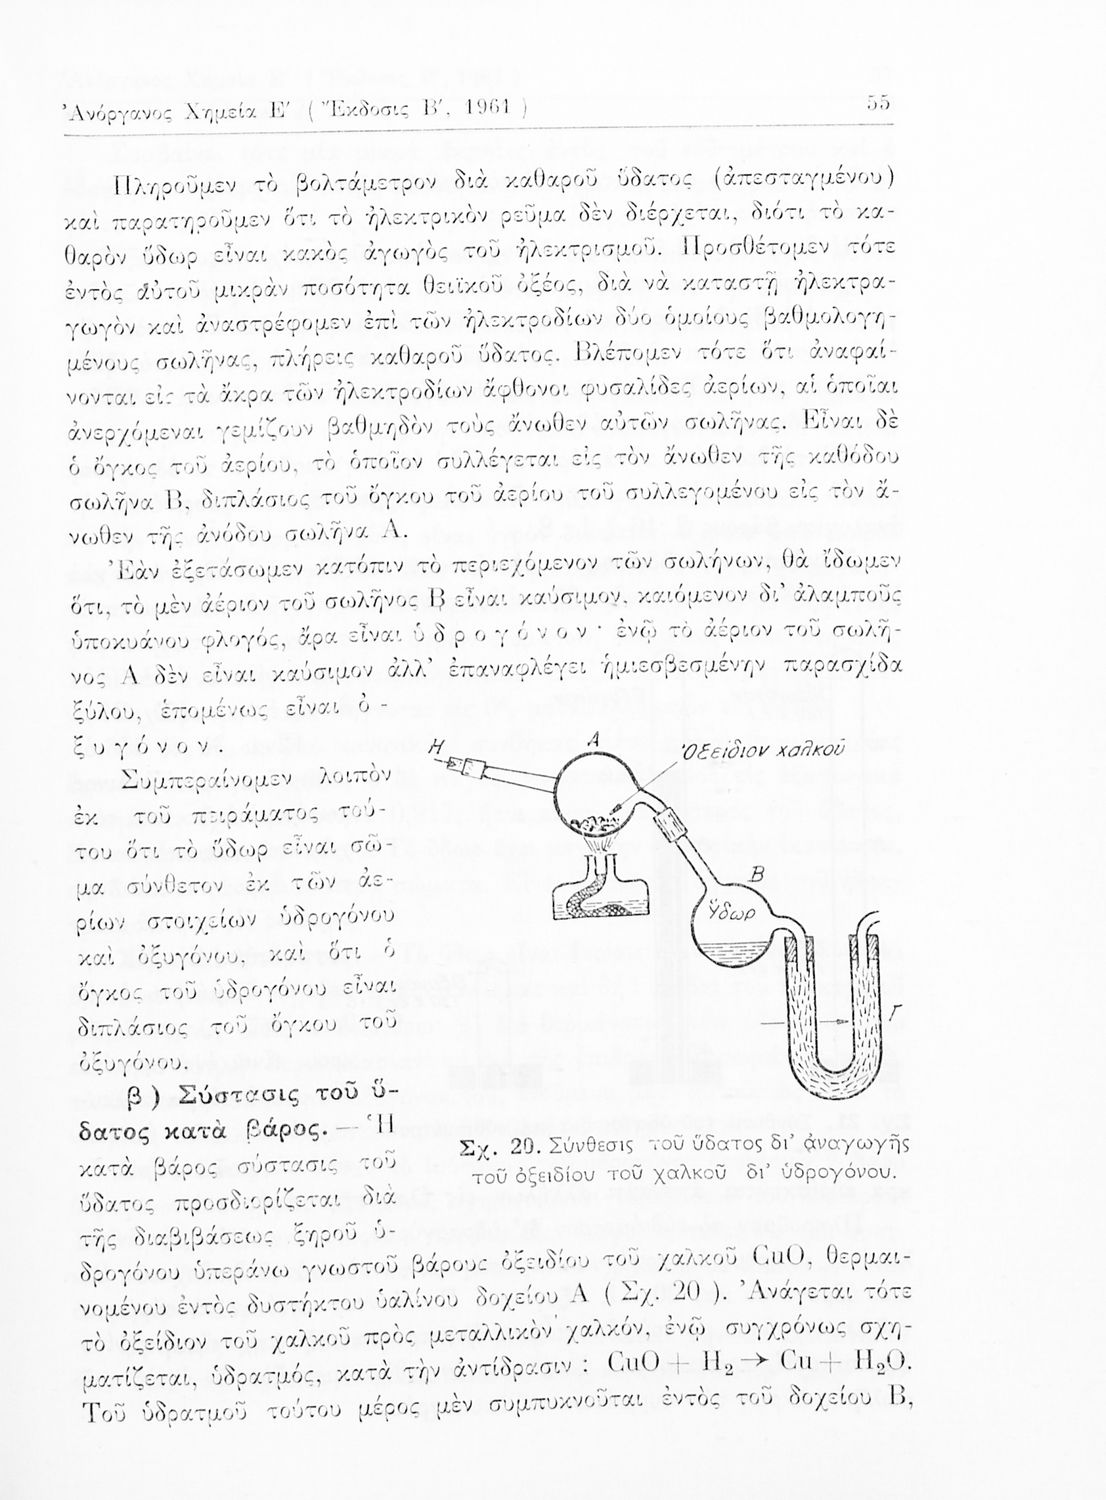 Ἀνόργανος Χημεία Ε′ ( Ἔκδοσις Β′, 1961 )
55
Πληροῦμεν τὸ βολτάμετρον διὰ καθαροῦ ὕδατος (ἀπεσταγμένου)
καὶ παρατηροῦμεν ὅτι τὸ ἠλεκτρικὸν ρεῦμα δὲν διέρχεται, διότι τὸ κα-
θαρὸν ὕδωρ εἶναι κακὸς ἀγωγὸς τοῦ ἠλεκτρισμοῦ. Προσθέτομεν τότε
ἐντὸς αὐτοῦ μικρὰν ποσότητα θειϊκοῦ ὀξέος, διὰ νὰ καταστῇ ἠλεκτρα-
γωγὸν καὶ ἀναστρέφομεν ἐπὶ τῶν ἠλεκτροδίων δύο ὁμοίους βαθμολογη-
μένους σωλῆνας, πλήρεις καθαροῦ ὕδατος. Βλέπομεν τότε ὅτι ἀναφαί-
νονται εἰς τὰ ἄκρα τῶν ἠλεκτροδίων ἄφθονοι φυσαλίδες ἀερίων, αἱ ὁποῖαι
ἀνερχόμεναι γεμίζουν βαθμηδὸν τοὺς ἄνωθεν αὐτῶν σωλῆνας. Εἶναι δὲ
ὁ ὄγκος τοῦ ἀερίου, τὸ ὁποῖον συλλέγεται εἰς τὸν ἄνωθεν τῆς καθόδου
σωλῆνα Β, διπλάσιος τοῦ ὄγκου τοῦ ἀερίου τοῦ συλλεγομένου εἰς τὸν ἄ-
νωθεν τῆς ἀνόδου σωλῆνα Α.
Ἐὰν ἐξετάσωμεν κατόπιν τὸ περιεχόμενον τῶν σωλήνων, θὰ ἴδωμεν
ὅτι, τὸ μὲν ἀέριον τοῦ σωλῆνος Β εἶναι καύσιμον, καιόμενον δι' ἀλαμποῦς
ὑποκυάνου φλογός, ἄρα εἶναι ὑ δ ρ ο γ ό ν ο ν · ἐνῷ τὸ ἀέριον τοῦ σωλῆ-
νος Α δὲν εἶναι καύσιμον ἀλλ' ἐπαναφλέγει ἡμιεσβεσμένην παρασχίδα
ξύλου, ἑπομένως εἶναι ὀ -
ξ υ γ ό ν ο ν .
Συμπεραίνομεν λοιπὸν
ἐκ τοῦ πειράματος τού-
του ὅτι τὸ ὕδωρ εἶναι σῶ-
μα σύνθετον ἐκ τῶν ἀε-
ρίων στοιχείων ὑδρογόνου
καὶ ὀξυγόνου, καὶ ὅτι ὁ
ὄγκος τοῦ ὑδρογόνου εἶναι
διπλάσιος τοῦ ὄγκου τοῦ
ὀξυγόνου.
β ) Σύστασις τοῦ ὕ-
δατος κατὰ βάρος. — Ἡ
κατὰ βάρος σύστασις τοῦ
ὕδατος προσδιορίζεται διὰ
τῆς διαβιβάσεως ξηροῦ ὑ-
δρογόνου ὑπεράνω γνωστοῦ βάρους ὀξειδίου τοῦ χαλκοῦ CuO, θερμαι-
νομένου ἐντὸς δυστήκτου ὑαλίνου δοχείου Α ( Σχ. 20 ). Ἀνάγεται τότε
τὸ ὀξείδιον τοῦ χαλκοῦ πρὸς μεταλλικὸν χαλκόν, ἐνῷ συγχρόνως σχη-
ματίζεται, ὑδρατμός, κατὰ τὴν ἀντίδρασιν : CuO + H₂ → Cu + H₂O.
Τοῦ ὑδρατμοῦ τούτου μέρος μὲν συμπυκνοῦται ἐντὸς τοῦ δοχείου Β,
H
A
Ὀξείδιον χαλκοῦ
B
Ὕδωρ
Γ
Σχ. 20. Σύνθεσις τοῦ ὕδατος δι' ἀναγωγῆς
τοῦ ὀξειδίου τοῦ χαλκοῦ δι' ὑδρογόνου.